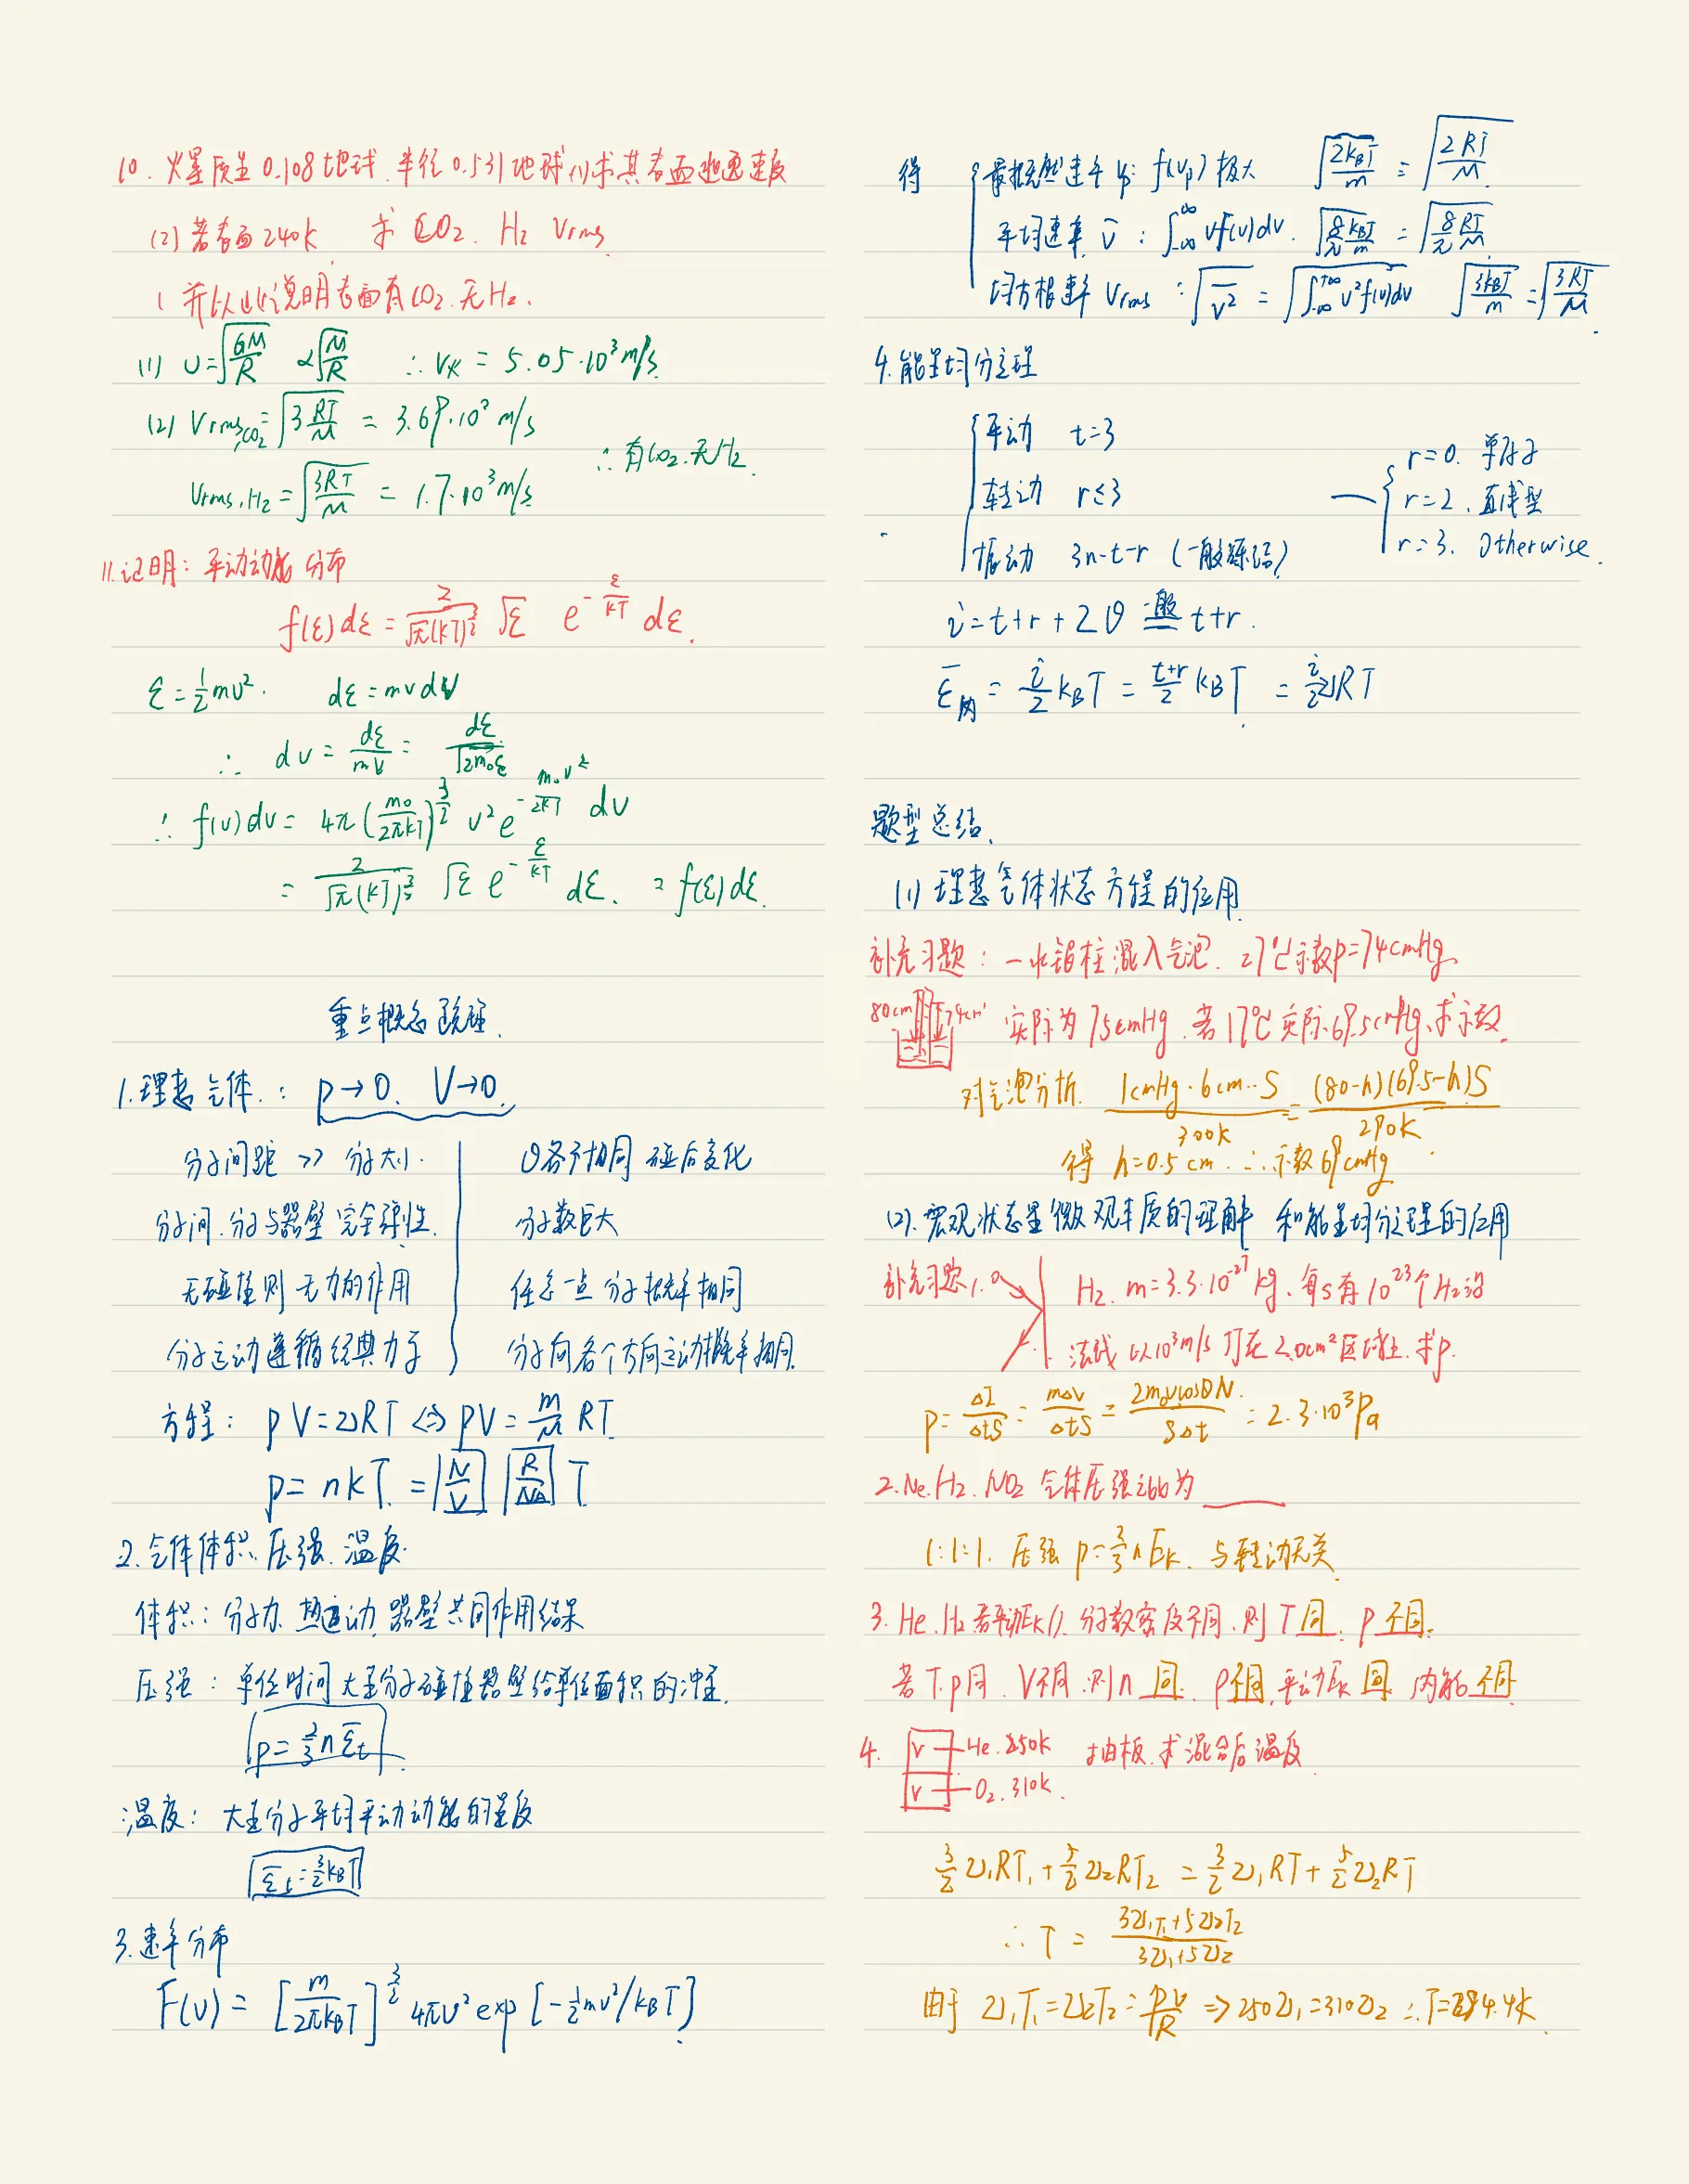 10. 火星质量0.108地球. 半径0.531地球 (1)求其表面逃逸速度
(2) 若表面240K 求 CO₂. H₂ Vrms.
( 并以此说明表面有CO₂. 无H₂.
(1) υ=√(GM/R) ∝√(M/R) ∴ V火 = 5.05·10³m/s.
(2) Vrms,CO₂=√(3RT/M) = 3.69·10² m/s
∴ 有CO₂. 无H₂.
Vrms,H₂=√(3RT/M) = 1.7·10³m/s
11. 证明: 平动动能分布
f(ε)dε = 2/(√π(kT)^(3/2)) √ε e^(-ε/kT) dε.
ε=½mυ². dε=mvdv
∴ dv = dε/mv = dε/√(2m₀ε)
∴ f(υ)dv = 4π(m₀/2πkT)^(3/2) υ² e^(-m₀υ²/2kT) dv
= 2/(√π(kT)^(3/2)) √ε e^(-ε/kT) dε. = f(ε)dε.
重点概念疏理.
1.理想气体.: p→0. V→0.
分子间距 >> 分子大小. υ各不相同 碰后变化
分子间. 分子与器壁 完全弹性. 分子数巨大
无碰撞则无力的作用 任意一点 分子概率相同
分子运动遵循经典力学 分子向各个方向运动概率相同.
方程: pV=νRT ⇔ pV = m/M RT.
p = nkT. = [N/V] [R/NA] T
2.气体体积. 压强. 温度.
体积: 分子力. 热运动. 器壁共同作用结果
压强: 单位时间 大量分子碰撞器壁给单位面积的冲量.
p=⅔nε̄t
温度: 大量分子平均平动动能的量度
ε̄t=3/2 kBT
3.速率分布
F(υ) = [m/2πkBT]^(3/2) 4πυ² exp[-½mυ²/kBT].
得 最概然速率 υp: f(υp)极大 √(2kBT/m) = √(2RT/M)
平均速率 v̄ : ∫_{-∞}^{∞} vf(v)dv. √(8/π kBT/m) = √(8/π RT/M)
均方根速率 Vrms : √(v̄²) = √(∫_{-∞}^{+∞} v²f(v)dv) √(3kBT/m) = √(3RT/M)
4.能量均分定理
平动 t=3
转动 r≤3
振动 3n-t-r (一般冻结)
r=0. 单原子
r=2. 直线型
r=3. otherwise.
i=t+r+2υ 一般== t+r.
ε̄内 = i/2 kBT = (t+r)/2 kBT = i/2 νRT
题型总结.
(1) 理想气体状态方程的应用
补充习题: 一水银柱混入气泡. 27℃示数p=74cmHg.
80cm 74cm 实际为75cmHg. 若17℃实际69.5cmHg, 求示数.
对气泡分析. 1cmHg·6cm·S/300K = (80-h)(69.5-h)S/290K
得 h=0.5cm. ∴示数69cmHg.
(2). 宏观状态量微观本质的理解 和能量均分定理的应用
补充习题1. H₂. m=3.3·10⁻²⁷kg. 每s有10²³个H₂沿
法线以10³m/s打在2.0cm²区域上. 求p.
p=ΔI/ΔtS = mΔv/ΔtS = 2m₀υcosθN/SΔt = 2.3·10³Pa
2.Ne. H₂. NO₂ 气体压强之比为____
1:1:1. 压强 p=⅔nĒk. 与转动无关.
3. He. H₂ 若平动Ek同. 分子数密度不同. 则 T同. p不同.
若T.p同. V不同.则n 同. ρ不同. 平动Ek 同. 内能不同.
4. V He.250K 抽板.求混合后温度
V O₂.310K.
3/2 ν₁RT₁ + 5/2 ν₂RT₂ = 3/2 ν₁RT + 5/2 ν₂RT
∴ T = (3ν₁T₁+5ν₂T₂)/(3ν₁+5ν₂)
由于 ν₁T₁=ν₂T₂=pV/R ⇒ 250ν₁=310ν₂ ∴T=284.4K.